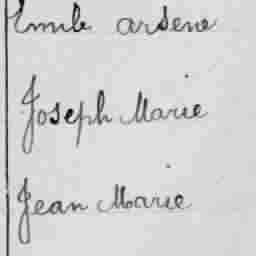 Emile arsene
Joseph Marie
Jean Marie